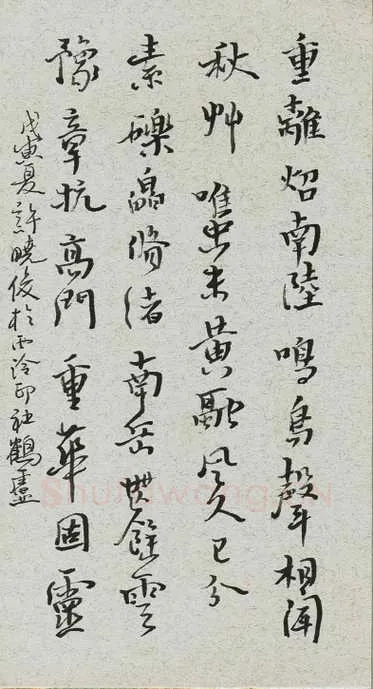 重離炤南陸鳴鳥聲相聞
秋艸雖未黃融風久已分
素礫皛脩渚南岳無餘雲
豫章抗高門重華固靈
戊寅夏許曉俊於西泠印社鶴廬